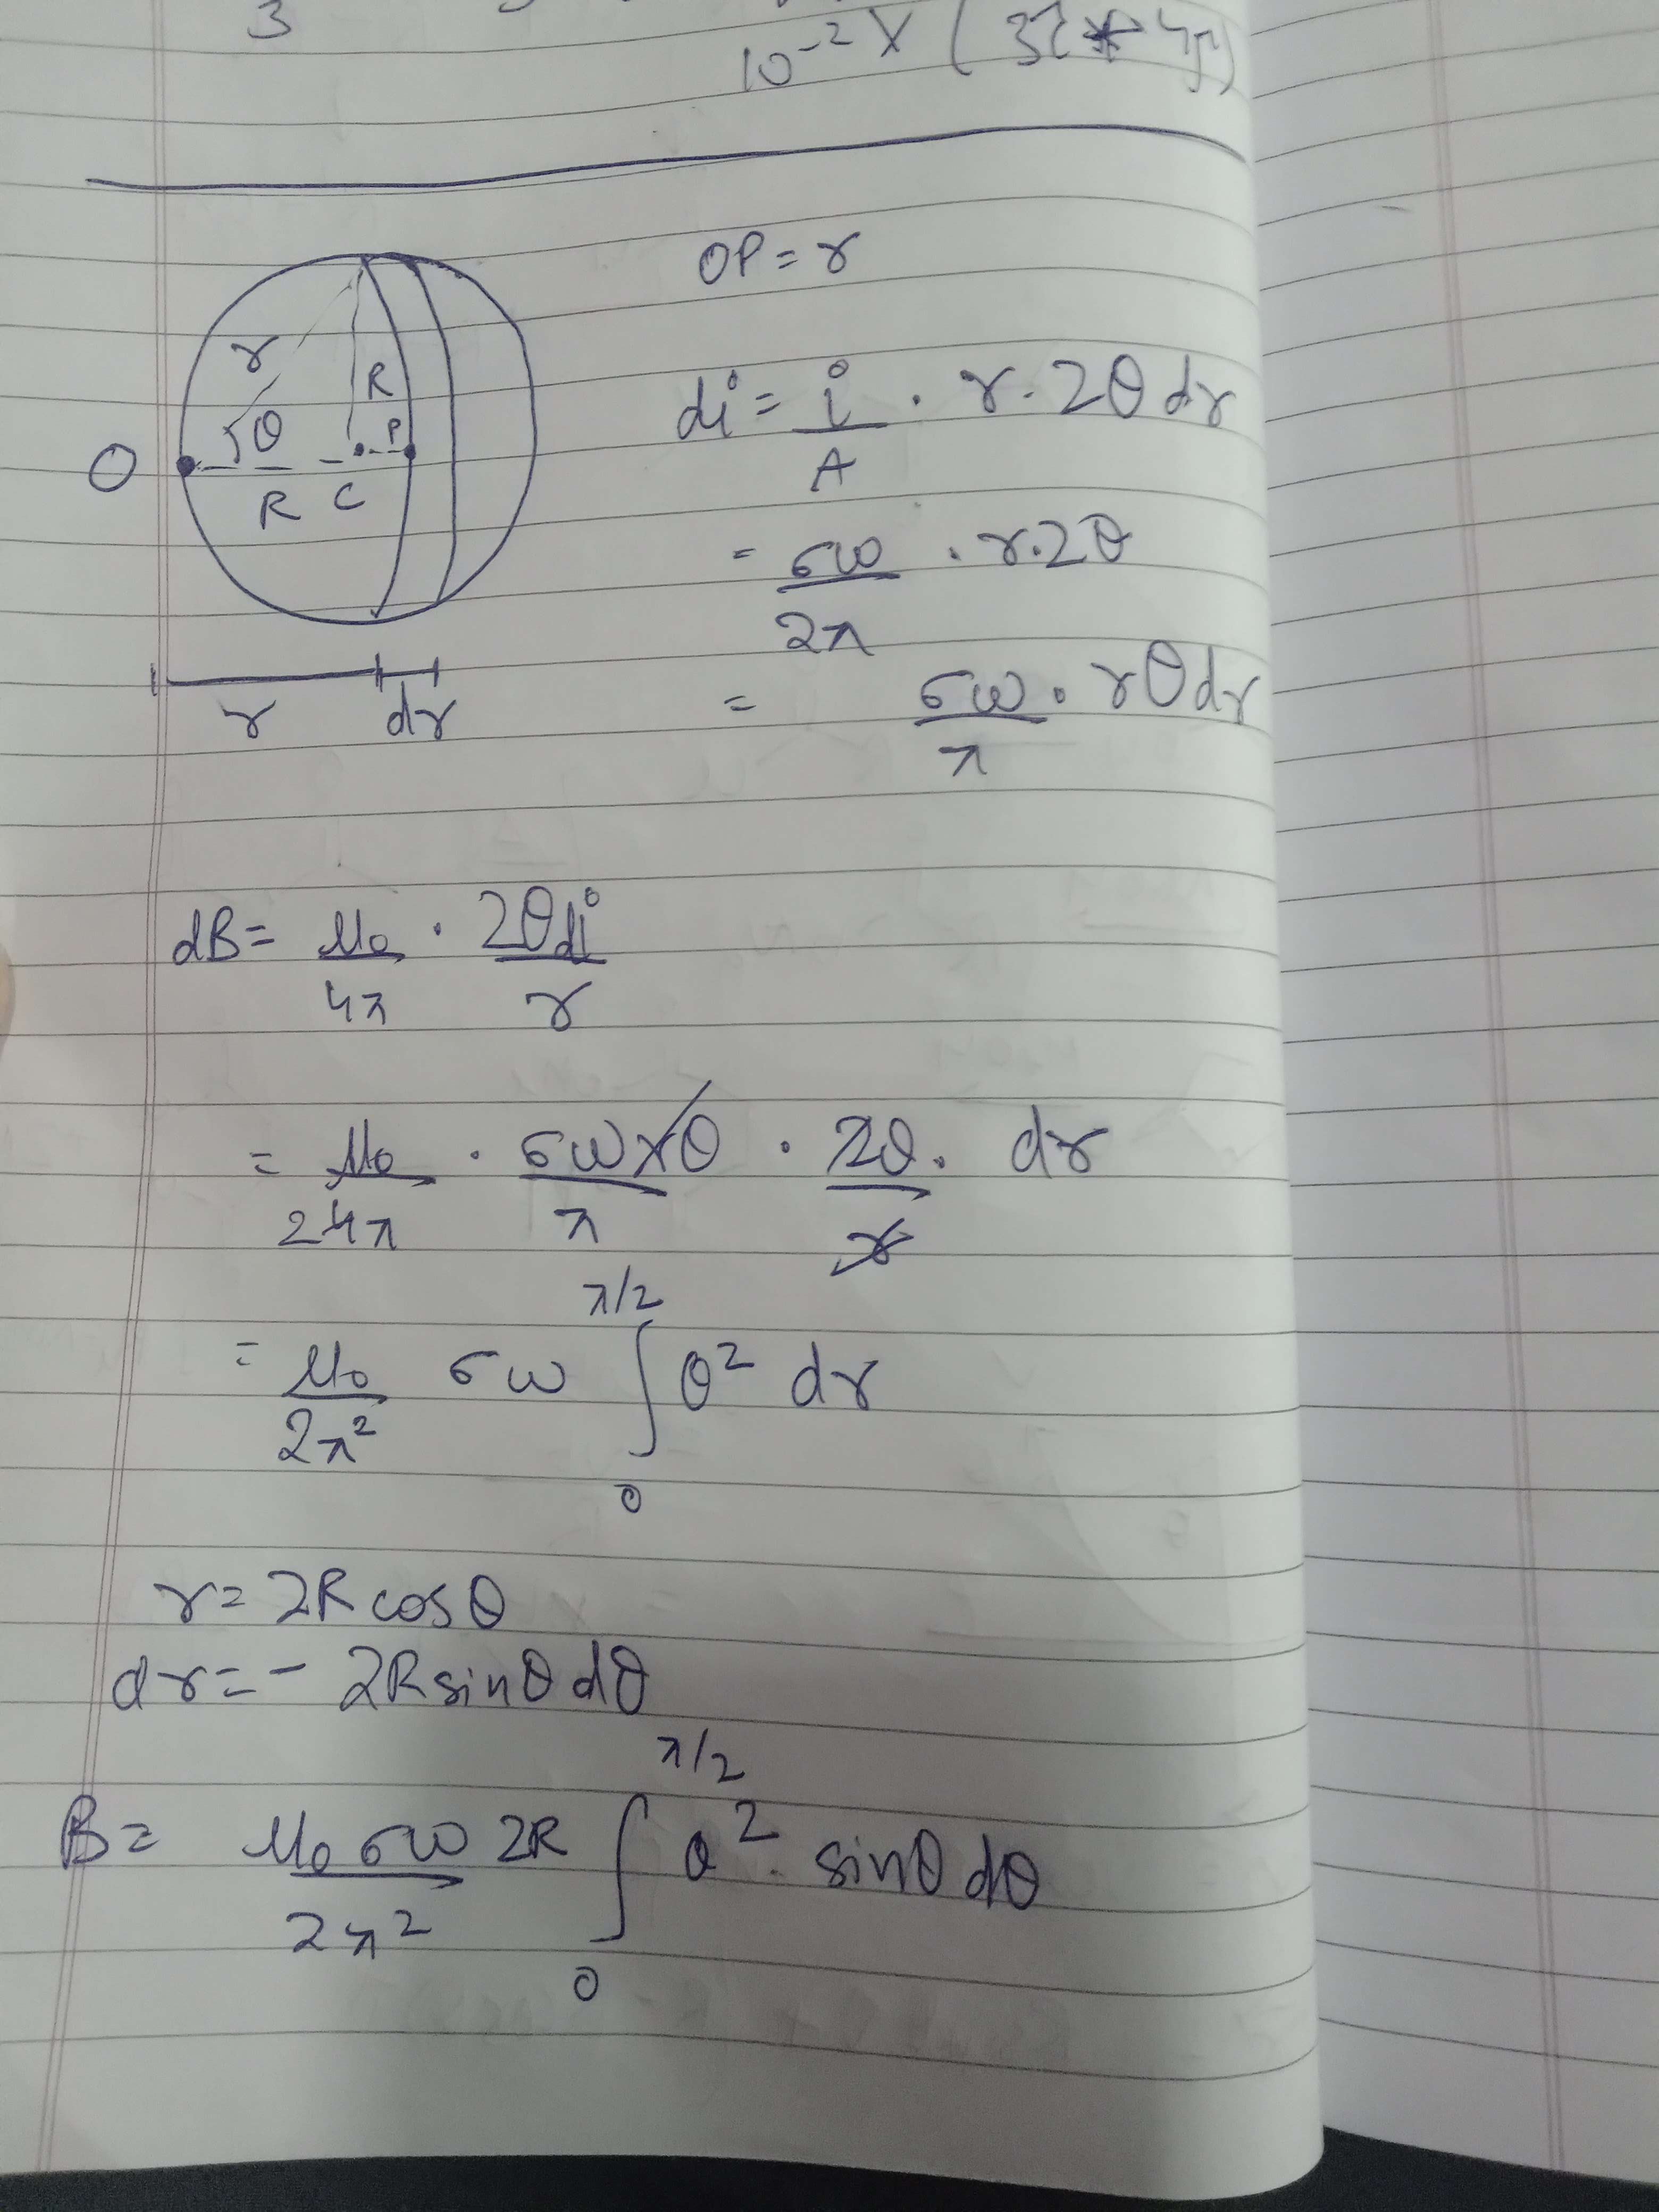 3
10⁻² × ( 3î
OP = r
r
R
θ
P
O
R C
r dr
di = i/A · r · 2θ dr
= σω/2π · r · 2θ
= σω/π · rθ dr
dB = μ₀/4π · 2θdi/r
= μ₀/24π · σωrθ/π · 2θ/r · dr
= μ₀/2π² σω ∫₀^π/2 θ² dr
r = 2R cosθ
dr = - 2R sinθ dθ
B = μ₀σω 2R/2π² ∫₀^π/2 θ² · sinθ dθ